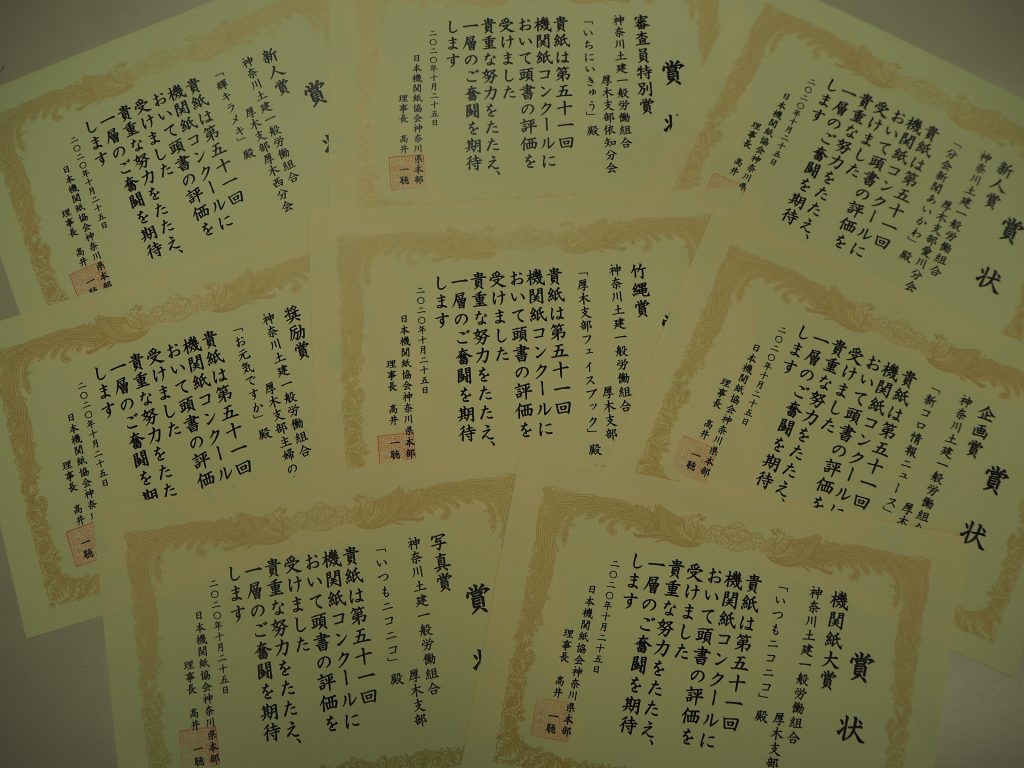 賞
新人賞
神奈川土建一般労働組合
厚木支部厚木西分会
「輝キラメキ」殿
貴紙は第五十一回
機関紙コンクールに
おいて頭書の評価を
受けました
貴重な努力をたたえ、
一層のご奮闘を期待
します
二〇二〇年十月二十五日
日本機関紙協会神奈川県本部
理事長 高井 一聴
賞
審査員特別賞
神奈川土建一般労働組合
厚木支部依知分会
「いちにいきゅう」殿
貴紙は第五十一回
機関紙コンクールに
おいて頭書の評価を
受けました
貴重な努力をたたえ、
一層のご奮闘を期待
します
二〇二〇年十月二十五日
日本機関紙協会神奈川県本部
理事長 高井 一聴
賞状
新人賞
神奈川土建一般労働組合
厚木支部愛川分会
「分会新聞あいかわ」殿
貴紙は第五十一回
機関紙コンクールに
おいて頭書の評価を
受けました
貴重な努力をたたえ、
一層のご奮闘を期待
します
二〇二〇年十月二十五日
日本機関紙協会神奈川県
理事長 高井
奨励賞
神奈川土建一般労働組合
厚木支部主婦の
「お元気ですか」殿
貴紙は第五十一回
機関紙コンクール
おいて頭書の評価
受けました
貴重な努力をたた
一層のご奮闘を期
します
二〇二〇年十月二十五日
日本機関紙協会神奈川
理事長 高井 一聴
竹縄賞
神奈川土建一般労働組合
厚木支部
「厚木支部フェイスブック」殿
貴紙は第五十一回
機関紙コンクールに
おいて頭書の評価を
受けました
貴重な努力をたたえ、
一層のご奮闘を期待
します
二〇二〇年十月二十五日
日本機関紙協会神奈川県本部
理事長 高井 一聴
賞状
企画賞
神奈川土建一般労働組
厚木
「新コロ情報ニュース」
貴紙は第五十一回
機関紙コンクールに
おいて頭書の評価を
受けました
貴重な努力をたたえ、
一層のご奮闘を期待
します
二〇二〇年十月二十五日
日本機関紙協会神奈川県本部
理事長 高井 一聴
賞
写真賞
神奈川土建一般労働組合
厚木支部
「いつもニコニコ」殿
貴紙は第五十一回
機関紙コンクールに
おいて頭書の評価を
受けました
貴重な努力をたたえ、
一層のご奮闘を期待
します
二〇二〇年十月二十五日
日本機関紙協会神奈川県本部
理事長 高井 一聴
賞状
機関紙大賞
神奈川土建一般労働組合
厚木支部
「いつもニコニコ」殿
貴紙は第五十一回
機関紙コンクールに
おいて頭書の評価を
受けました
貴重な努力をたたえ、
一層のご奮闘を期待
します
二〇二〇年十月二十五日
日本機関紙協会神奈川県本部
理事長 高井 一聴